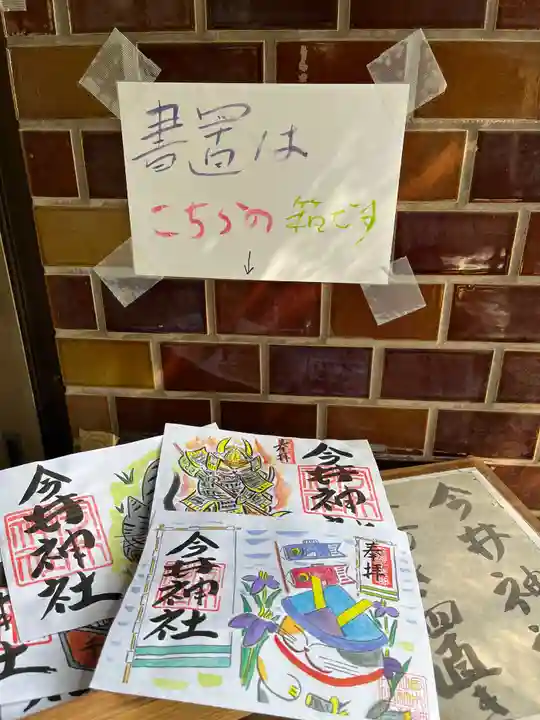 書置は
こちらの箱です
↓
奉拝
今井神社
今井神社
奉拝
今井神社
神社
今井神
書置き